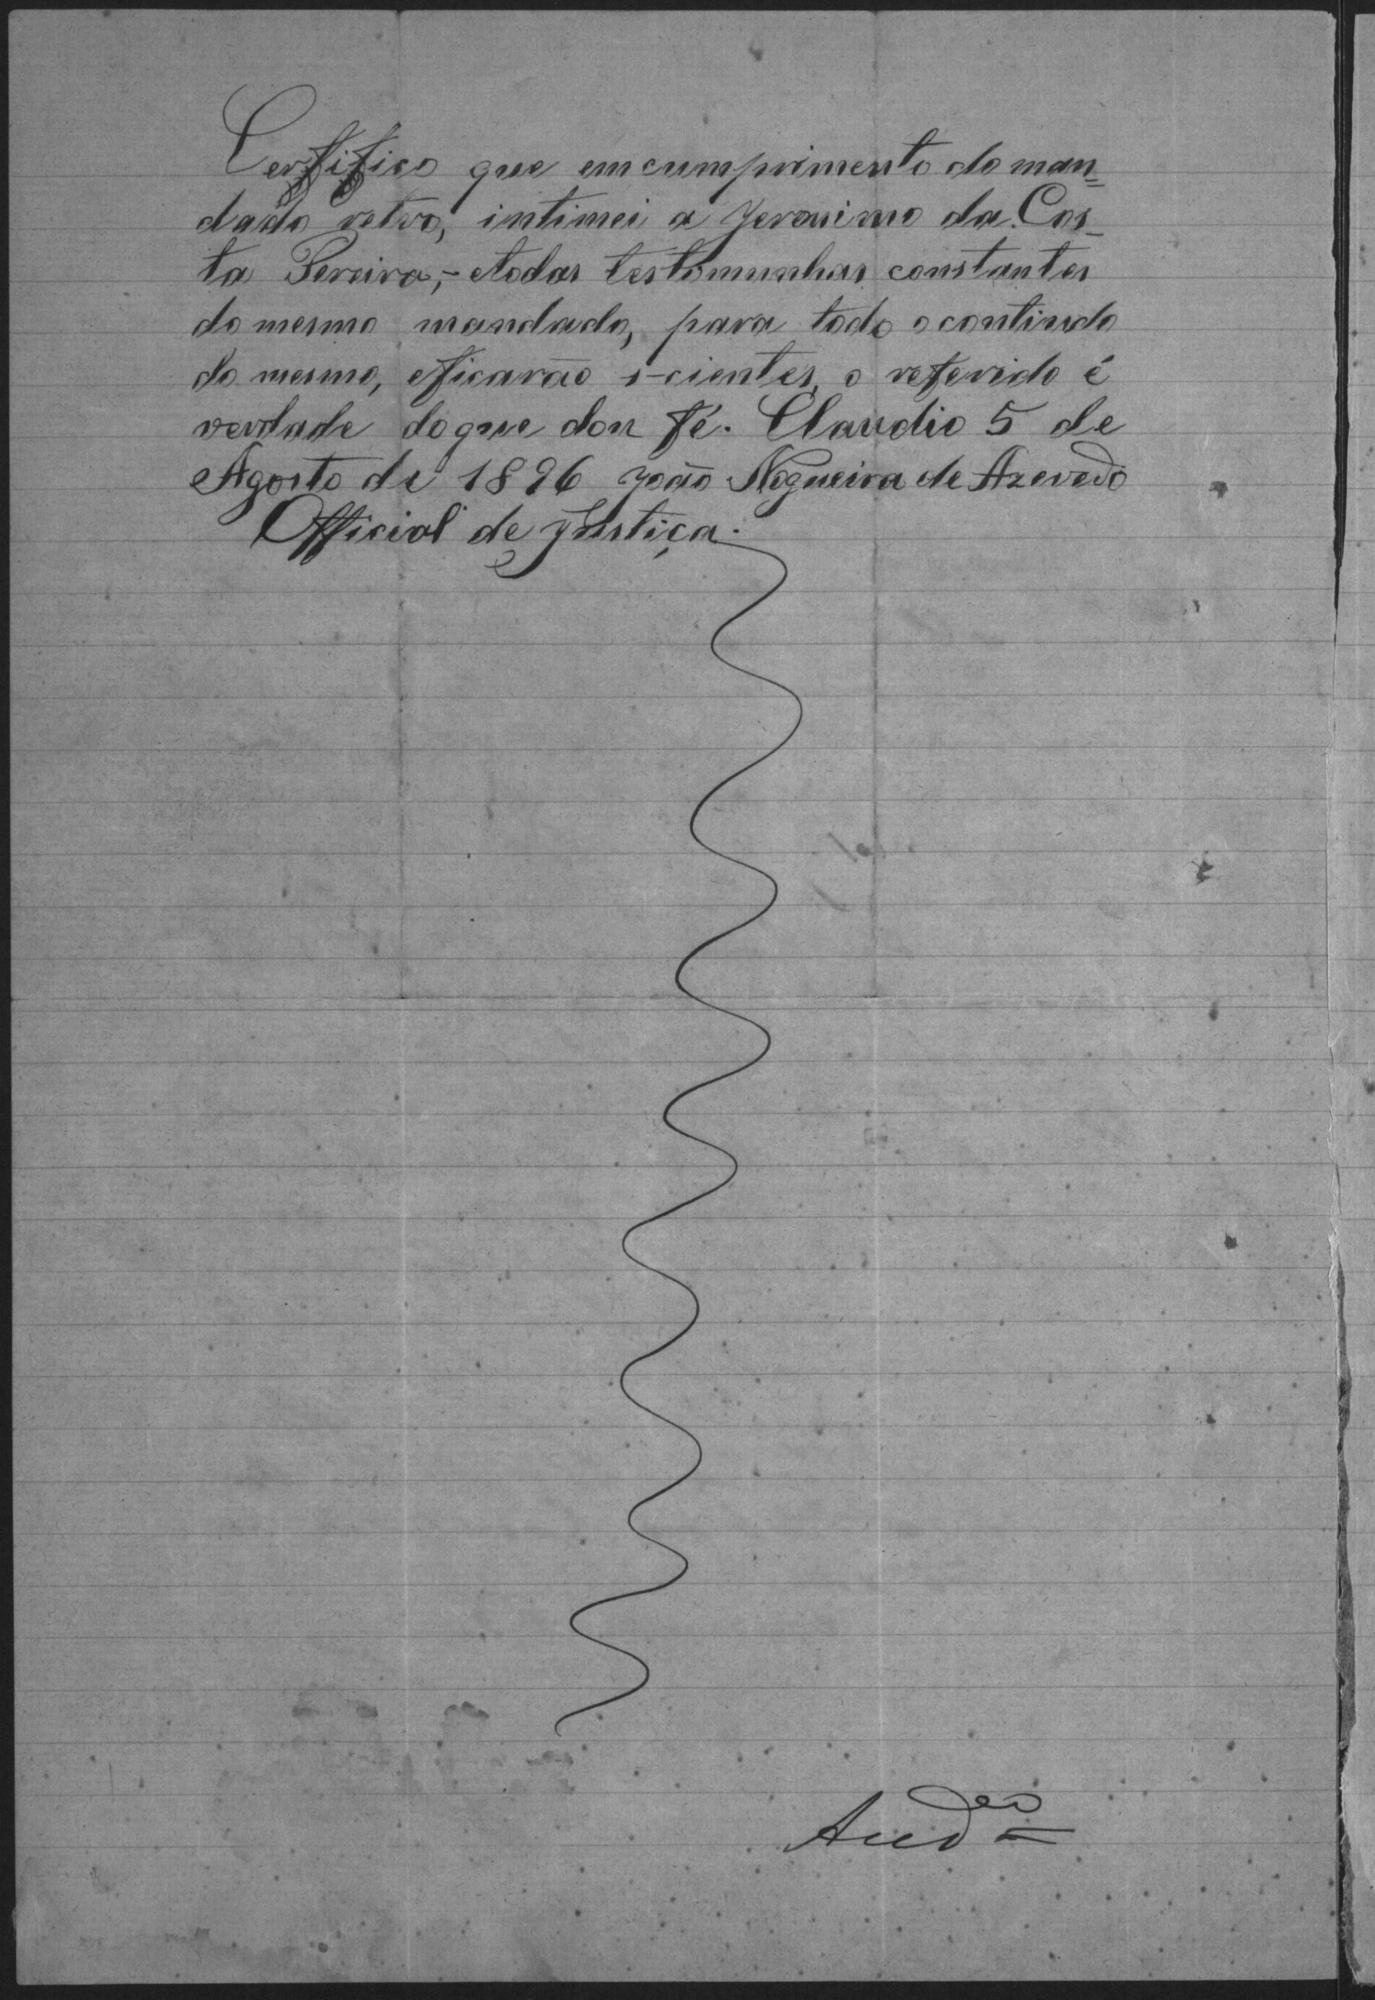 Certifico que em cumprimento do man=
dado retro, intimei a Jeronimo da Cos_
ta Pereira,- etodas testimunhas constantes
do mesmo mandado, para todo o contiudo
do mesmo, eficarão s-cientes, o referido é
verdade doque dou fé. Claudio 5 de
Agosto de 1896 João Nogueira de Azevedo
Official de Justiça.